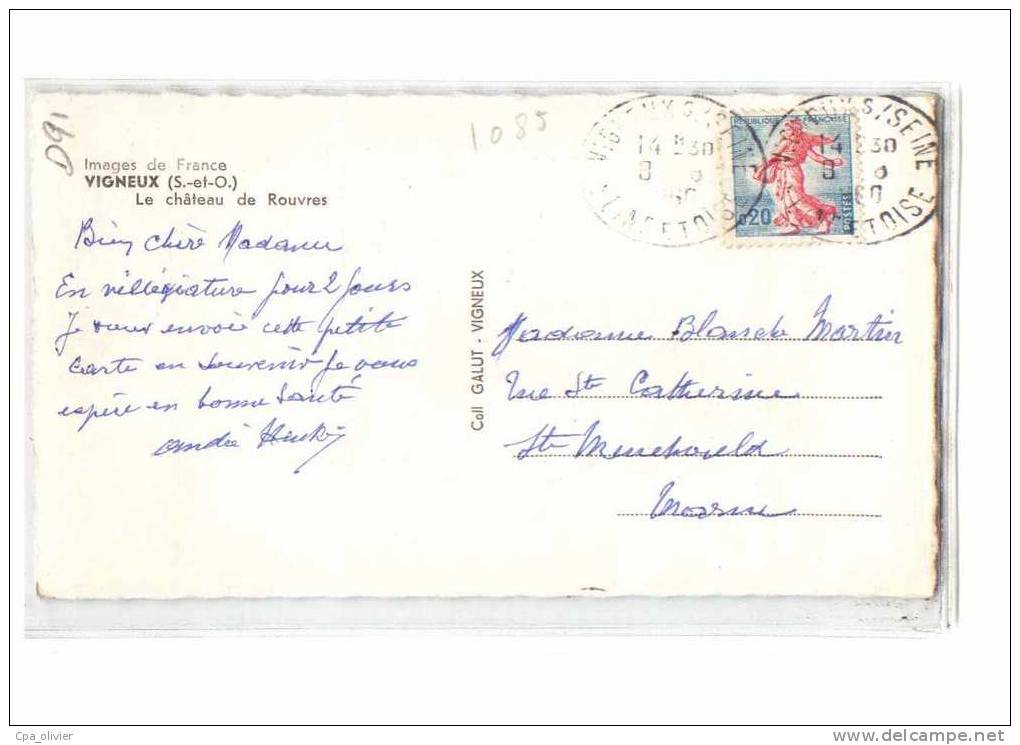 D91
1085
Images de France
VIGNEUX (S.-et-O.)
Le château de Rouvres
Bien chère Madame
En villégiature pour 2 jours
Je vous envoie cette petite
carte en souvenir Je vous
espère en bonne santé
andré
Coll GALUT - VIGNEUX
VIGNEUX S/SEINE
14 H30
8 8
1960
SEINE ET OISE
REPUBLIQUE FRANÇAISE
0,20
POSTES
VIGNEUX S/SEINE
14 H30
8 8
1960
SEINE ET OISE
Madame Blanche Martin
rue Ste Catherine
Ste Menehould
Marne
Cpa_olivier
www.delcampe.net